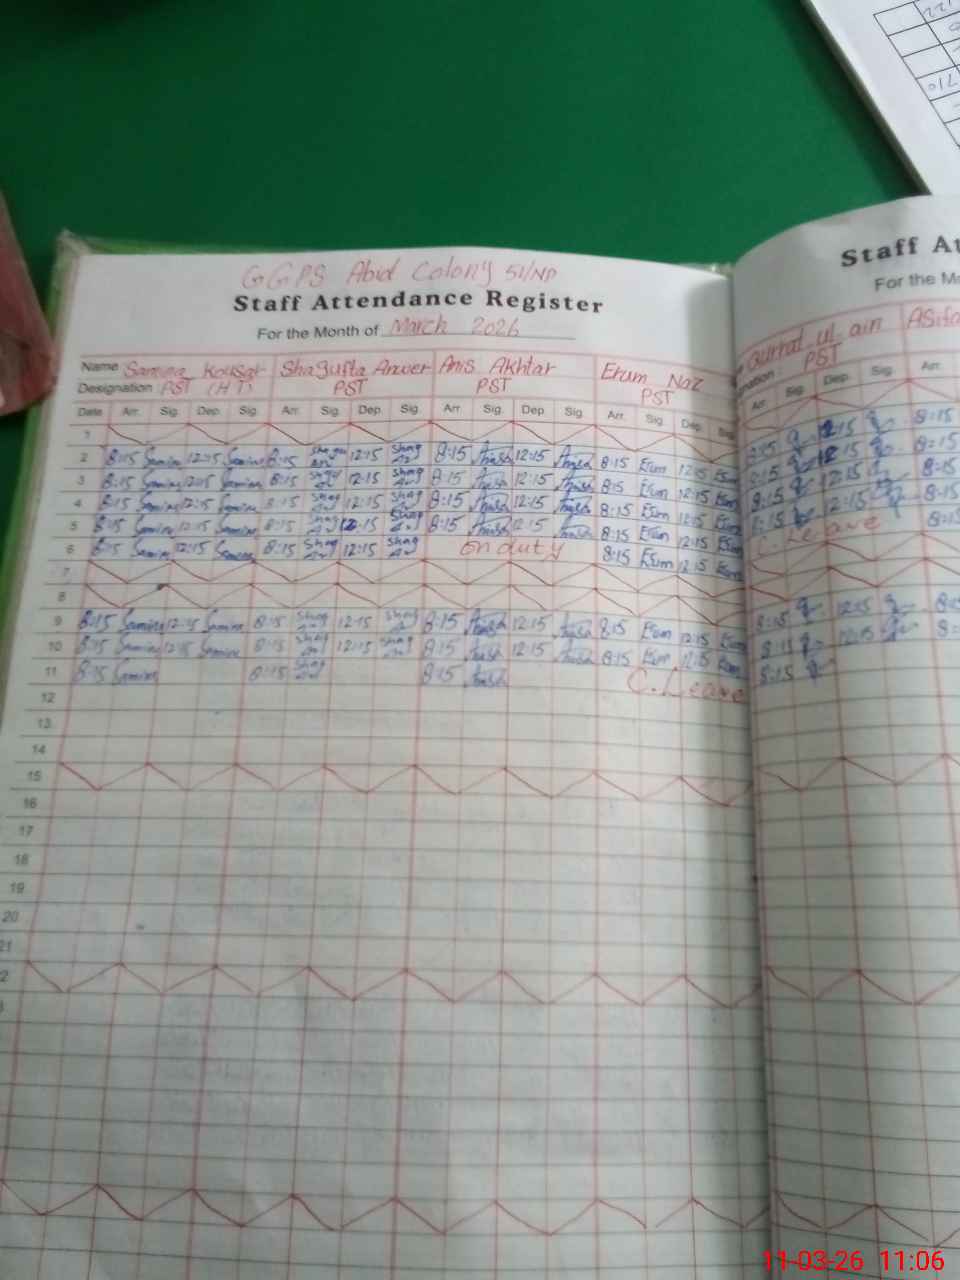 GGPS Abid Colony 51/NP
Staff Attendance Register
For the Month of March 2026
Name Samina Kousar Shagufta Anwer Anis Akhtar Erum Naz
Designation PST (H T) PST PST PST
Date Arr. Sig. Dep. Sig. Arr. Sig. Dep. Sig. Arr. Sig. Dep. Sig. Arr. Sig. Dep. Sig.
1
2 8:15 Samina 12:15 Samina 8:15 12:15 8:15 Anish 12:15 Anish 8:15 Erum 12:15 Erum
3 8:15 Samina 12:15 Samina 8:15 12:15 8:15 Anish 12:15 Anish 8:15 Erum 12:15 Erum
4 8:15 Samina 12:15 Samina 8:15 12:15 8:15 Anish 12:15 Anish 8:15 Erum 12:15 Erum
5 8:15 Samina 12:15 Samina 8:15 12:15 8:15 Anish 12:15 Anish 8:15 Erum 12:15 Erum
6 8:15 Samina 12:15 Samina 8:15 12:15 on duty 8:15 Erum 12:15 Erum
7
8
9 8:15 Samina 12:15 Samina 8:15 12:15 8:15 Anish 12:15 Anish 8:15 Erum 12:15 Erum
10 8:15 Samina 12:15 Samina 8:15 12:15 8:15 Anish 12:15 Anish 8:15 Erum 12:15 Erum
11 8:15 Samina 8:15 8:15 Anish C.Leave
12
13
14
15
16
17
18
19
20
21
Staff At
For the Mo
Qurrat ul ain ASifa
nation PST
Arr. Sig. Dep. Sig. Arr.
8:15 12:15 8:15
8:15 12:15 8:15
8:15 12:15 8:15
8:15 12:15 8:15
C. Leave 8:15
8:15 12:15
8:15 12:15
8:15
11-03-26 11:06